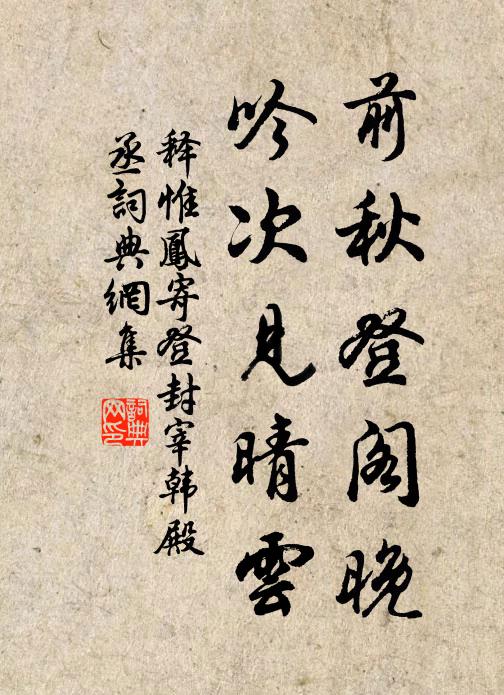 前秋登阁晚
吟次見晴雲
释惟鳳寄登封宰韩殿
丞詞典網集
詞典
网印